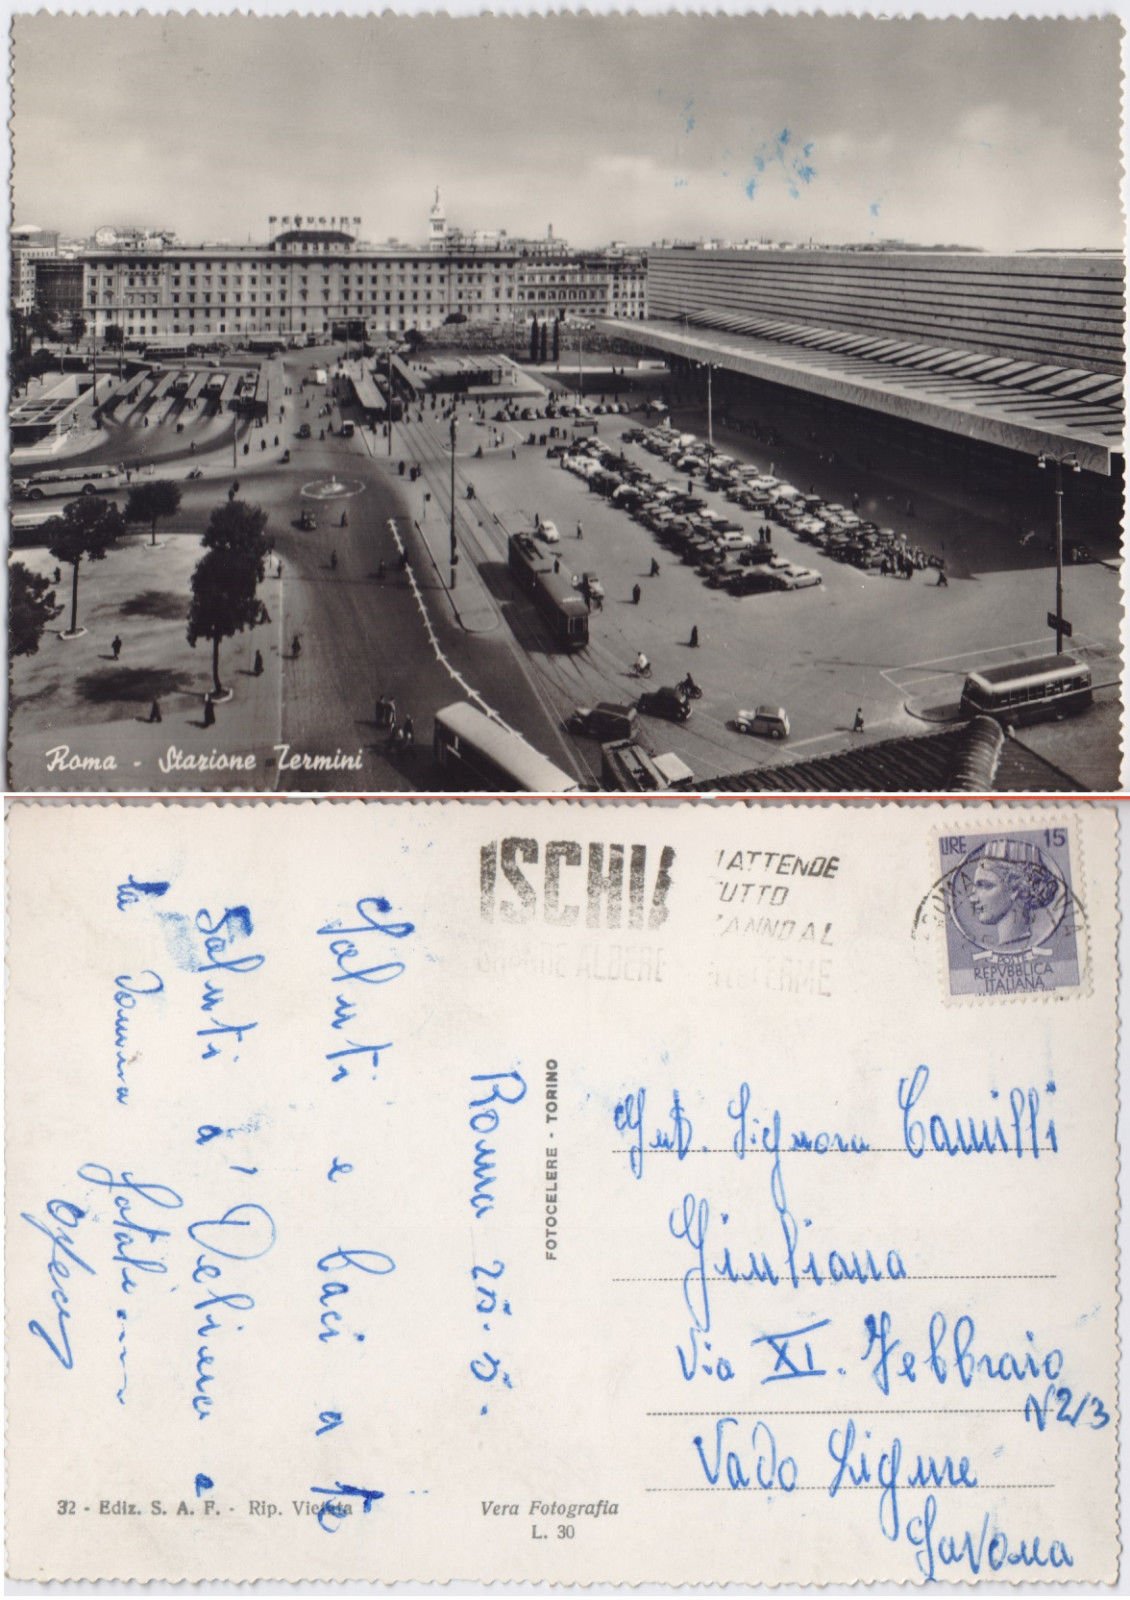 PERUGINA
Roma - Stazione Termini
ISCHIA
ATTENDE
TUTTO
ANNO AL
TERME
LIRE 15
POSTE
REPVBBLICA
ITALIANA
Roma 25.5.
Saluti e baci a te
Saluti a Velina e
la
FOTOCELERE - TORINO
Gent. Signora Camilli
Giuliana
Via XI. Febbraio
N 2/3
Vado Ligure
Savona
32 - Ediz. S. A. F. - Rip. Vietata
Vera Fotografia
L. 30